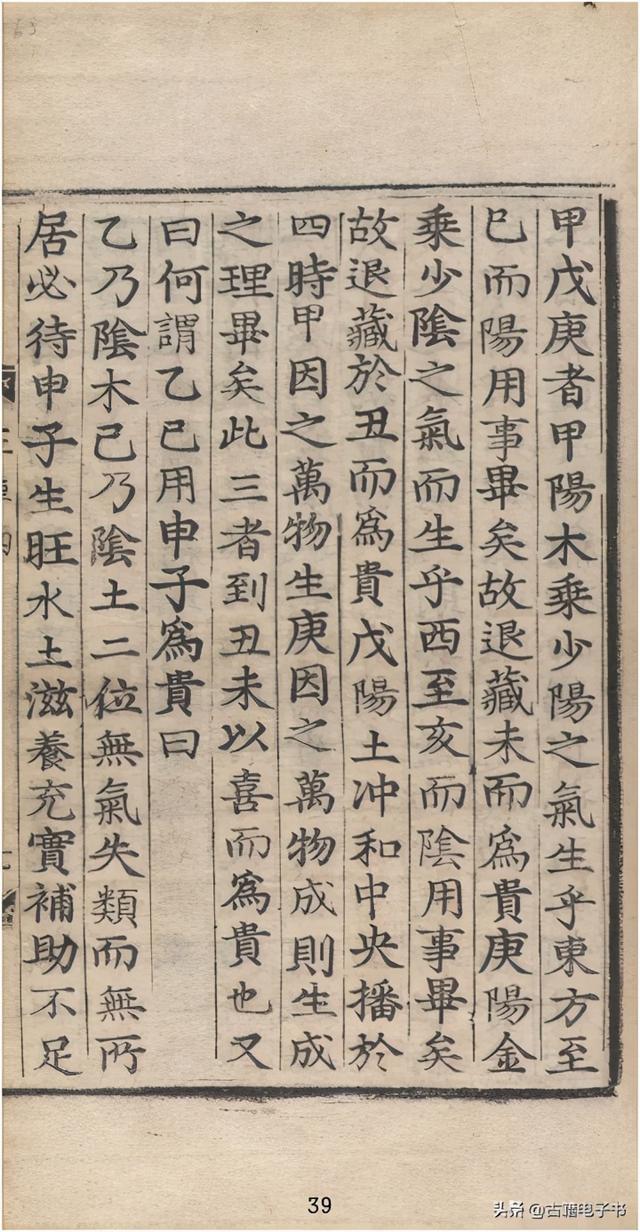 甲戊庚者甲陽木乘少陽之氣生乎東方至
巳而陽用事畢矣故退藏未而爲貴庚陽金
乘少陰之氣而生乎西至亥而陰用事畢矣
故退藏於丑而爲貴戊陽土冲和中央播於
四時甲因之萬物生庚因之萬物成則生成
之理畢矣此三者到丑未以喜而爲貴也又
曰何謂乙巳用申子爲貴曰
乙乃陰木己乃陰土二位無氣失類而無所
居必待申子生旺水土滋養充實補助不足
39
头条@古籍电子书